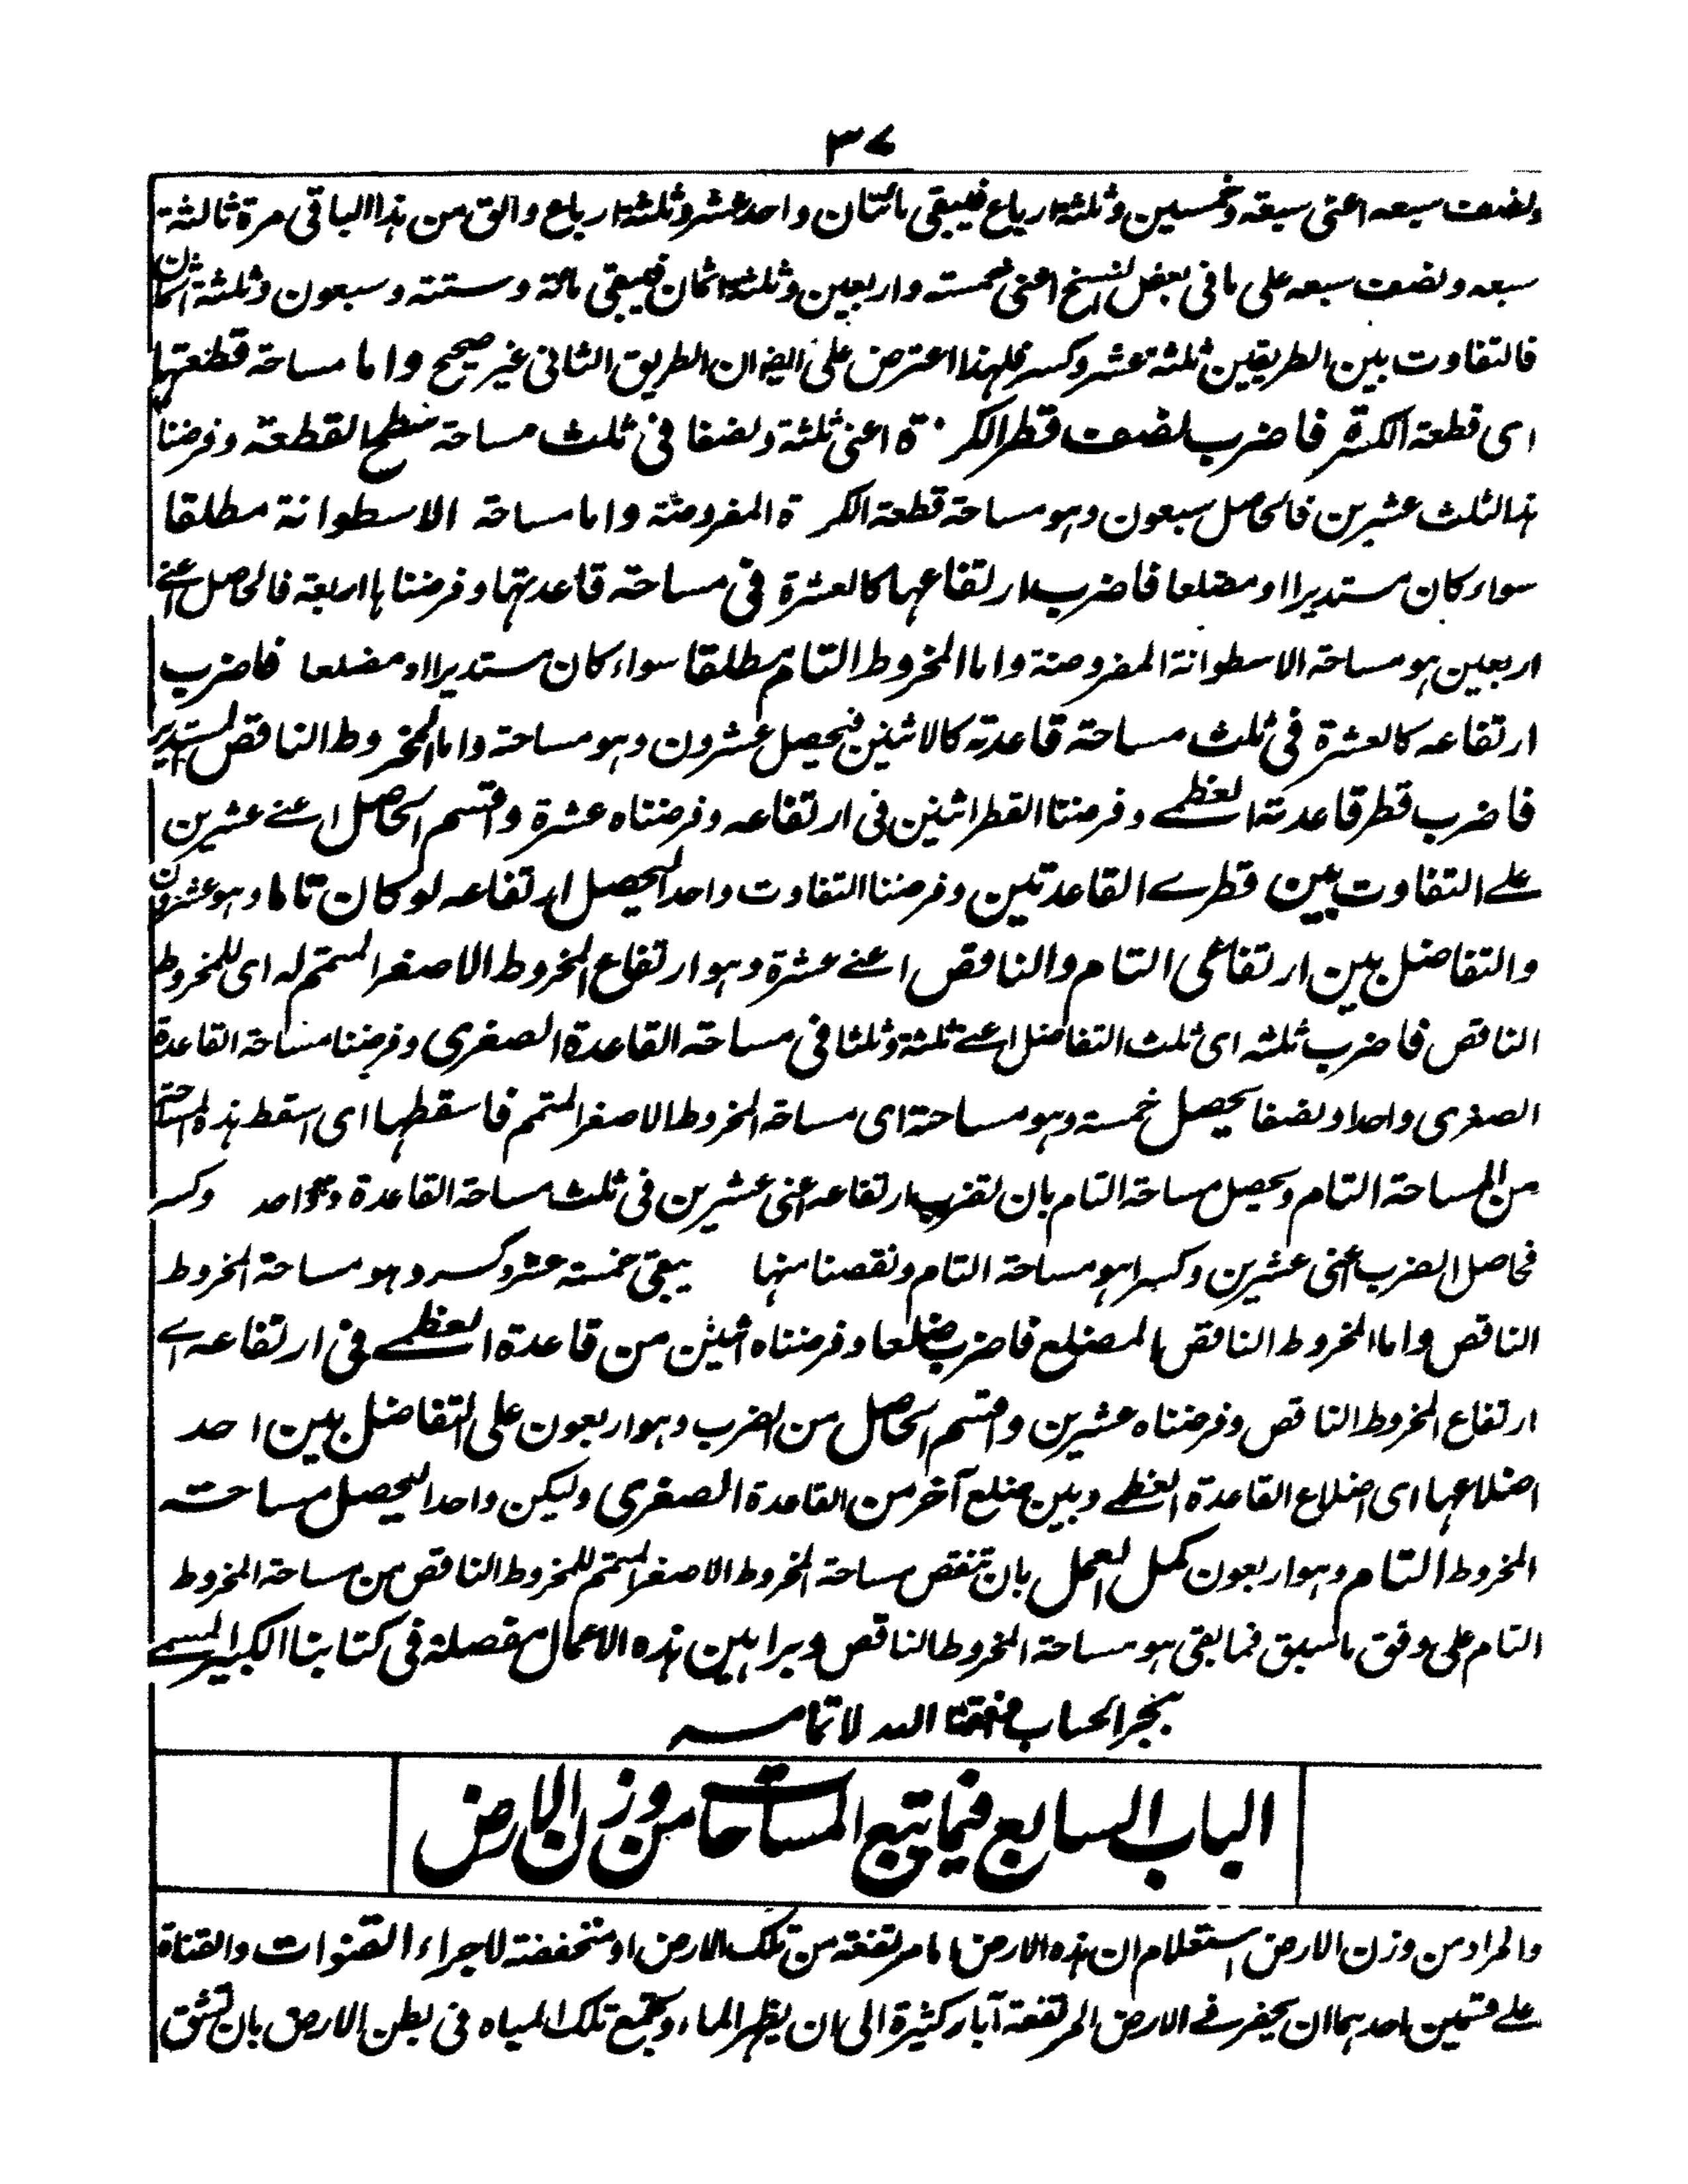 ٣٧
ونصف سبعه اعنى سبعة وخمسين وثلثة ارباع فيبقى مائتان واحد عشر وثلثة ارباع والق من هذا الباقى مرة ثالثة
سبعه ونصف سبعه على ما فى بعض النسخ اعنى خمسة واربعين وثلثة اثمان فيبقى مائة وستة وسبعون وثلثة اثمان
فالتفاوت بين الطريقين ثلثة عشر وكسر فلهذا اعترض على ان الطريق الثانى غير صحيح واما مساحة قطعتها
اى قطعة الكرة فاضرب نصف قطر الكرة اعنى ثلثة ونصفا فى ثلث مساحة سطح القطعة وفرضنا
هذا الثلث عشرين فالحاصل سبعون وهو مساحة قطعة الكرة المفروضة واما مساحة الاسطوانة مطلقا
سواء كان مستديرا او مضلعا فاضرب ارتفاعها كالعشرة فى مساحة قاعدتها وفرضناها اربعة فالحاصل اعنے
اربعين هو مساحة الاسطوانة المفروضة واما المخروط التام مطلقا سواء كان مستديرا او مضلعا فاضرب
ارتفاعه كالعشرة فى ثلث مساحة قاعدته كالاثنين فيحصل عشرون وهو مساحة واما المخروط الناقص المستدير
فاضرب قطر قاعدته العظمے وفرضنا القطر اثنين فى ارتفاعه وفرضناه عشرة واقسم الحاصل اعنے عشرين
علے التفاوت بين قطرے القاعدتين وفرضنا التفاوت واحدا ليحصل ارتفاعه لو كان تاما وهو عشرون
والتفاضل بين ارتفاعى التام والناقص اعنے عشرة وهو ارتفاع المخروط الاصغر المتمم له اى للمخروط
الناقص فاضرب ثلثه اى ثلث التفاضل اعنے ثلثة وثلثا فى مساحة القاعدة الصغرى وفرضنا مساحة القاعدة
الصغرى واحدا ونصفا يحصل خمسة وهو مساحتة اى مساحة المخروط الاصغر المتمم فاسقطها اى اسقط هذه المساحة
من المساحة التام ويحصل مساحة التام بان تضرب ارتفاعه اعنى عشرين فى ثلث مساحة القاعدة وهو واحد وكسر
فحاصل الضرب اعنى عشرين وكسرا هو مساحة التام ونقصنا منها يبقى خمسة عشر وكسر وهو مساحة المخروط
الناقص واما المخروط الناقص المضلع فاضرب ضلعا وفرضناه اثنين من قاعدة العظمے فى ارتفاعه اے
ارتفاع المخروط الناقص وفرضناه عشرين واقسم الحاصل من الضرب وهو اربعون على التفاضل بين احد
اضلاعها اى اضلاع القاعدة العظمے وبين ضلع آخر من القاعدة الصغرى وليكن واحدا ليحصل مساحته
المخروط التام وهو اربعون كمل العمل بان تنقص مساحة المخروط الاصغر المتمم للمخروط الناقص من مساحة المخروط
التام على وفق ما سبق فما بقى هو مساحة المخروط الناقص وبراهين هذه الاعمال مفصلة فى كتابنا الكبير المسمے
ببحر الحساب وفقنا الله لاتمامه
الباب السابع فيما يتبع المساحات من وزن الارض
والمراد من وزن الارض استعلام ان هذه الارض اما مرتفعة من تلك الارض او منخفضة لاجراء القنوات والقناة
علے قسمين احدهما ان يحفر فے الارض المرتفعة آبار كثيرة الى ان يظهر الماء ويجتمع تلك المياه فى بطن الارض بان تشق